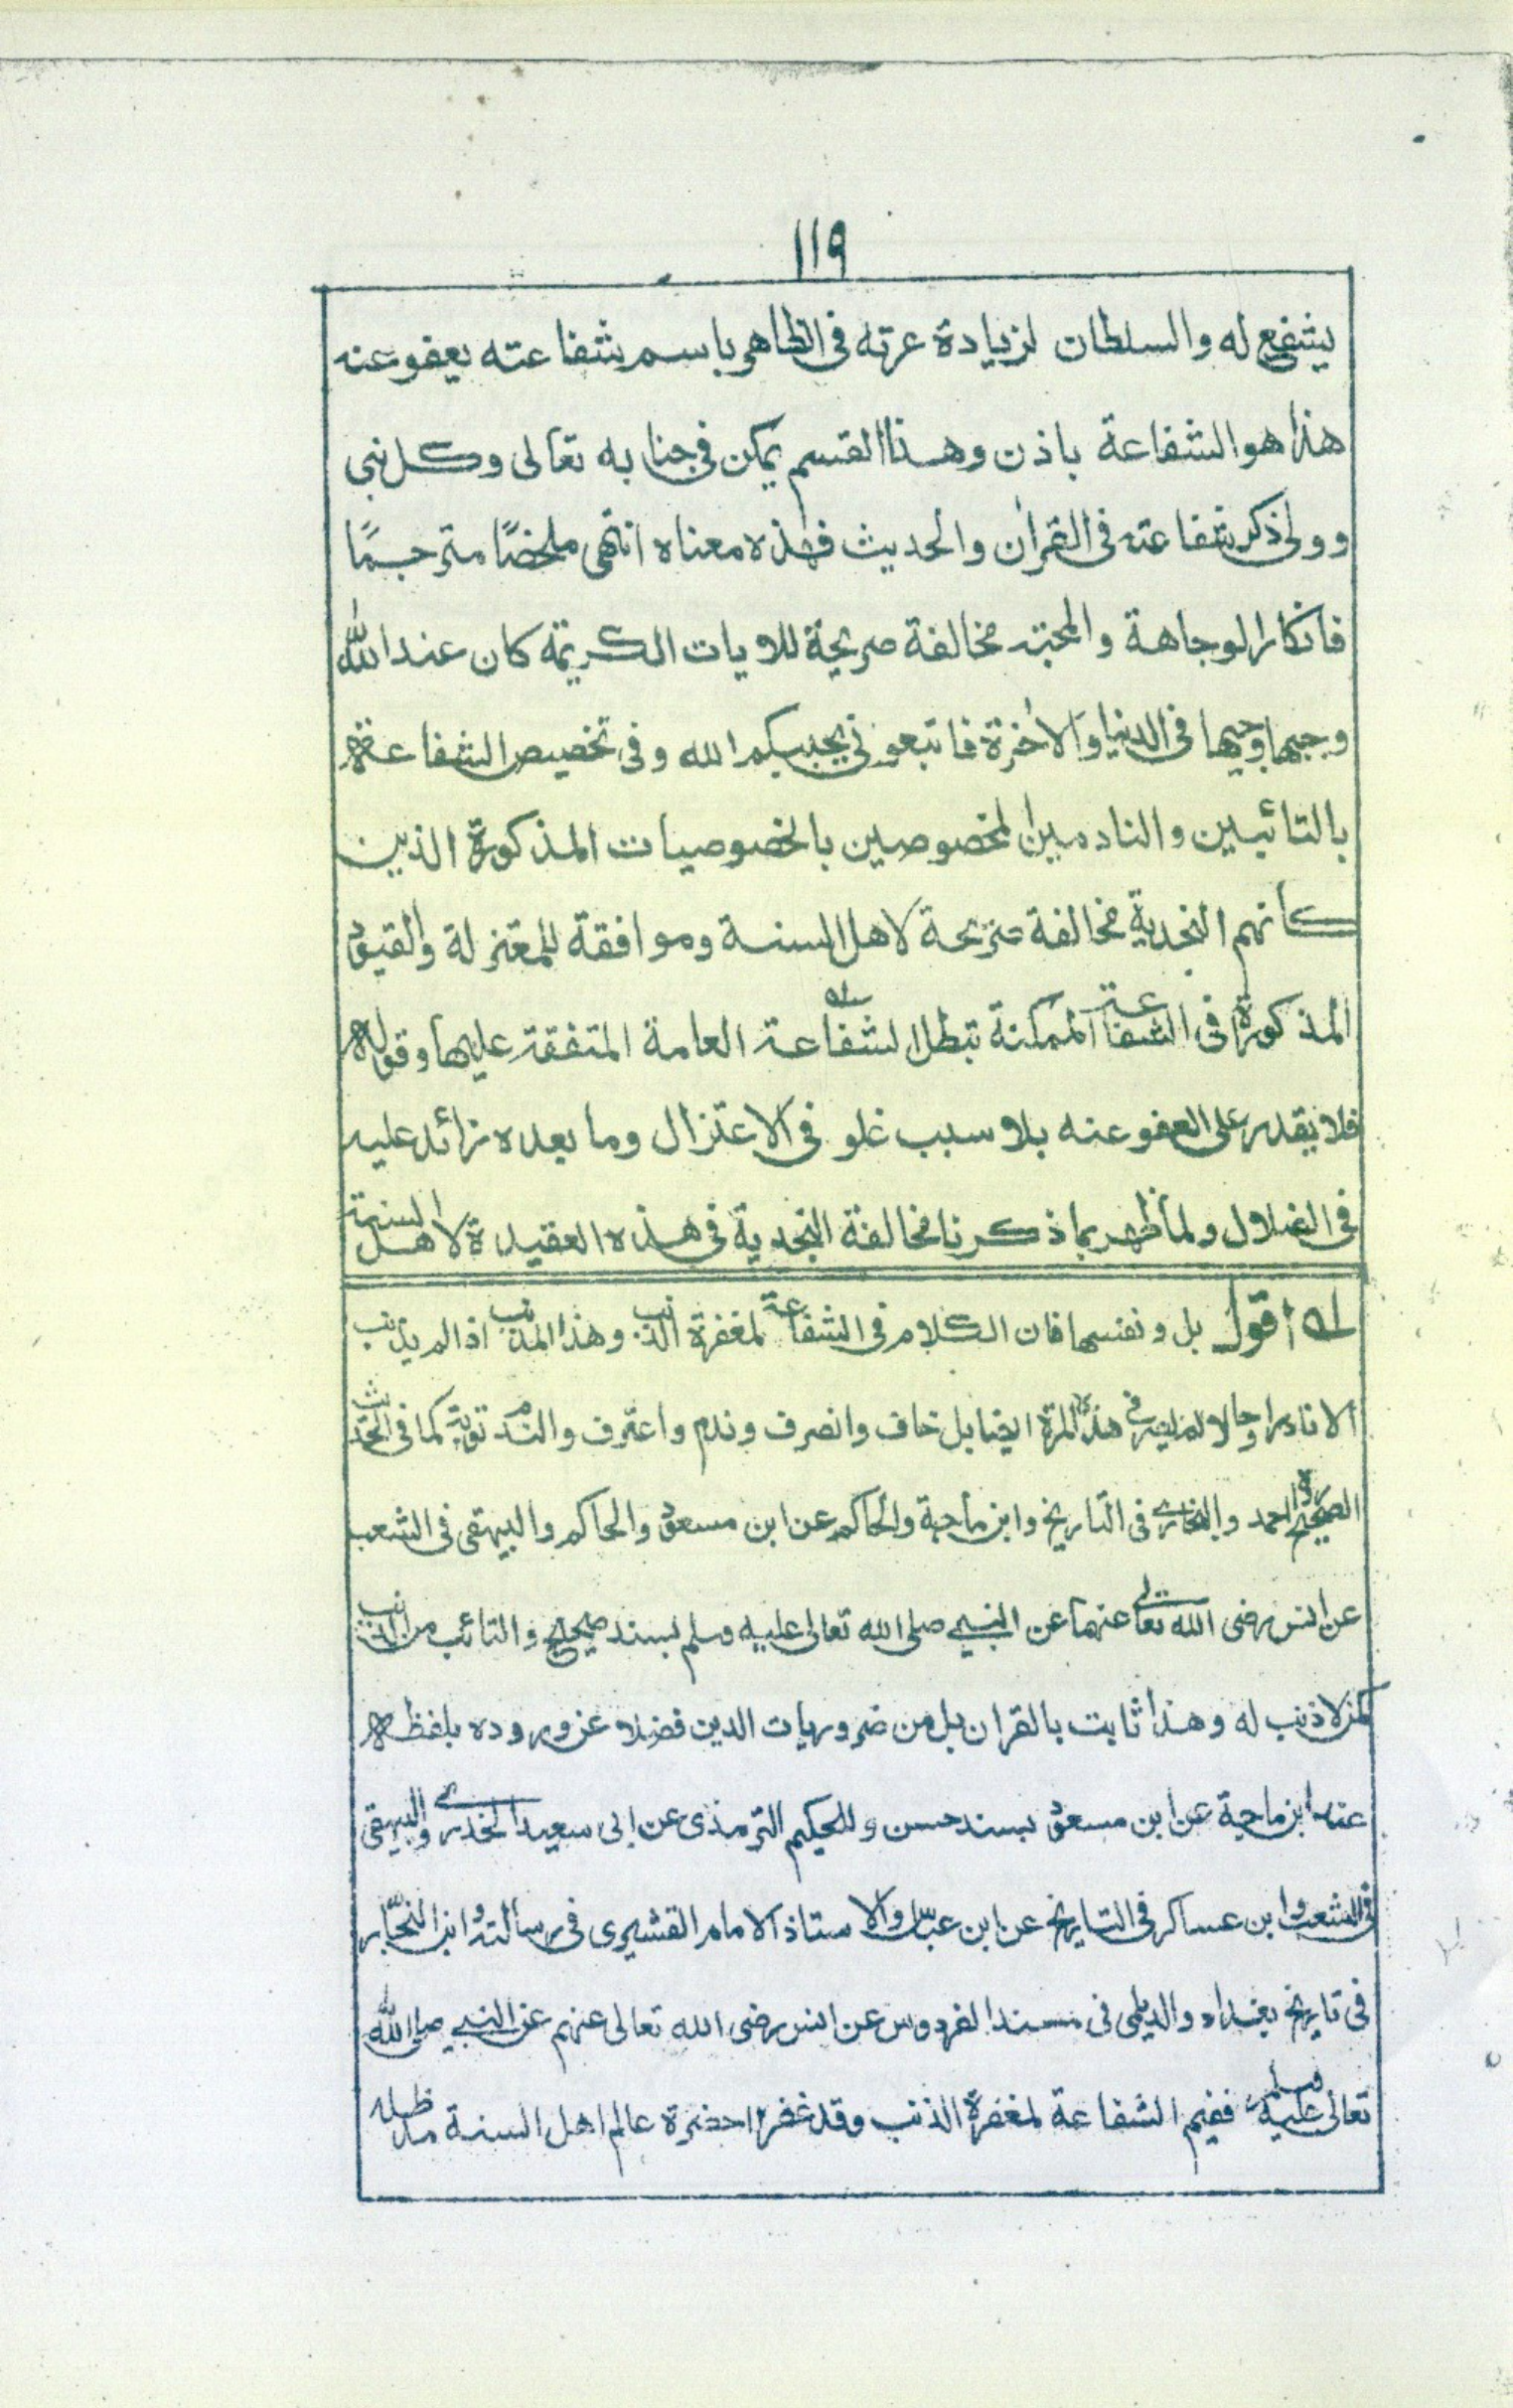 ١١٩
يشفع له والسلطان لزيادة عزته فى الظاهر باسم شفاعته يعفو عنه
هذا هو الشفاعة باذن وهذا القسم يمكن فى جنابه تعالى وكل نبى
وولى ذكر شفاعته فى القرآن والحديث فهذه معناه انتهى ملخصًا مترجمًا
فانكار الوجاهة والمحبة مخالفة صريحة للايات الكريمة كان عند الله
وجيها وجيها فى الدنيا والاخرة فاتبعونى يحببكم الله وفى تخصيص الشفاعة
بالتائبين والنادمين المخصوصين بالخصوصيات المذكورة الذين
كأنهم النجدية مخالفة صريحة لاهل السنة وموافقة للمعتزلة والقيود
المذكورة فى الشفاعة الممكنة تبطل الشفاعة العامة المتفقة عليها وقوله
فلا يقدر على العفو عنه بلا سبب غلو فى الاعتزال وما بعده زائد عليه
فى الضلال ولما ظهر بما ذكرنا مخالفة النجدية فى هذه العقيدة لاهل السنة
له اقول بل ونفسها فان الكلام فى الشفاعة لمغفرة الذنب وهذا المذنب اذا لم يذنب
الا نادرا وحالا لم يصر فى هذه المرة ايضا بل خاف وانصرف وندم واعترف والندم توبة كما فى الحديث
الصحيح رواه احمد والبخارى فى التاريخ وابن ماجة والحاكم عن ابن مسعود والحاكم والبيهقى فى الشعب
عن انس رضى الله تعالى عنهما عن النبى صلى الله تعالى عليه وسلم بسند صحيح والتائب من الذنب
كمن لا ذنب له وهذا ثابت بالقران بل من ضروريات الدين فضلا عن وروده بلفظه
عند ابن ماجة عن ابن مسعود بسند حسن وللحكيم الترمذى عن ابى سعيد الخدرى والبيهقى
فى الشعب وابن عساكر فى التاريخ عن ابن عباس والاستاذ الامام القشيرى فى رسالته وابن النجار
فى تاريخ بغداد والديلمى فى مسند الفردوس عن انس رضى الله تعالى عنهم عن النبى صلى الله
تعالى عليه وسلم ففيم الشفاعة لمغفرة الذنب وقد غفر ١٢ حضرة عالم اهل السنة مد ظله